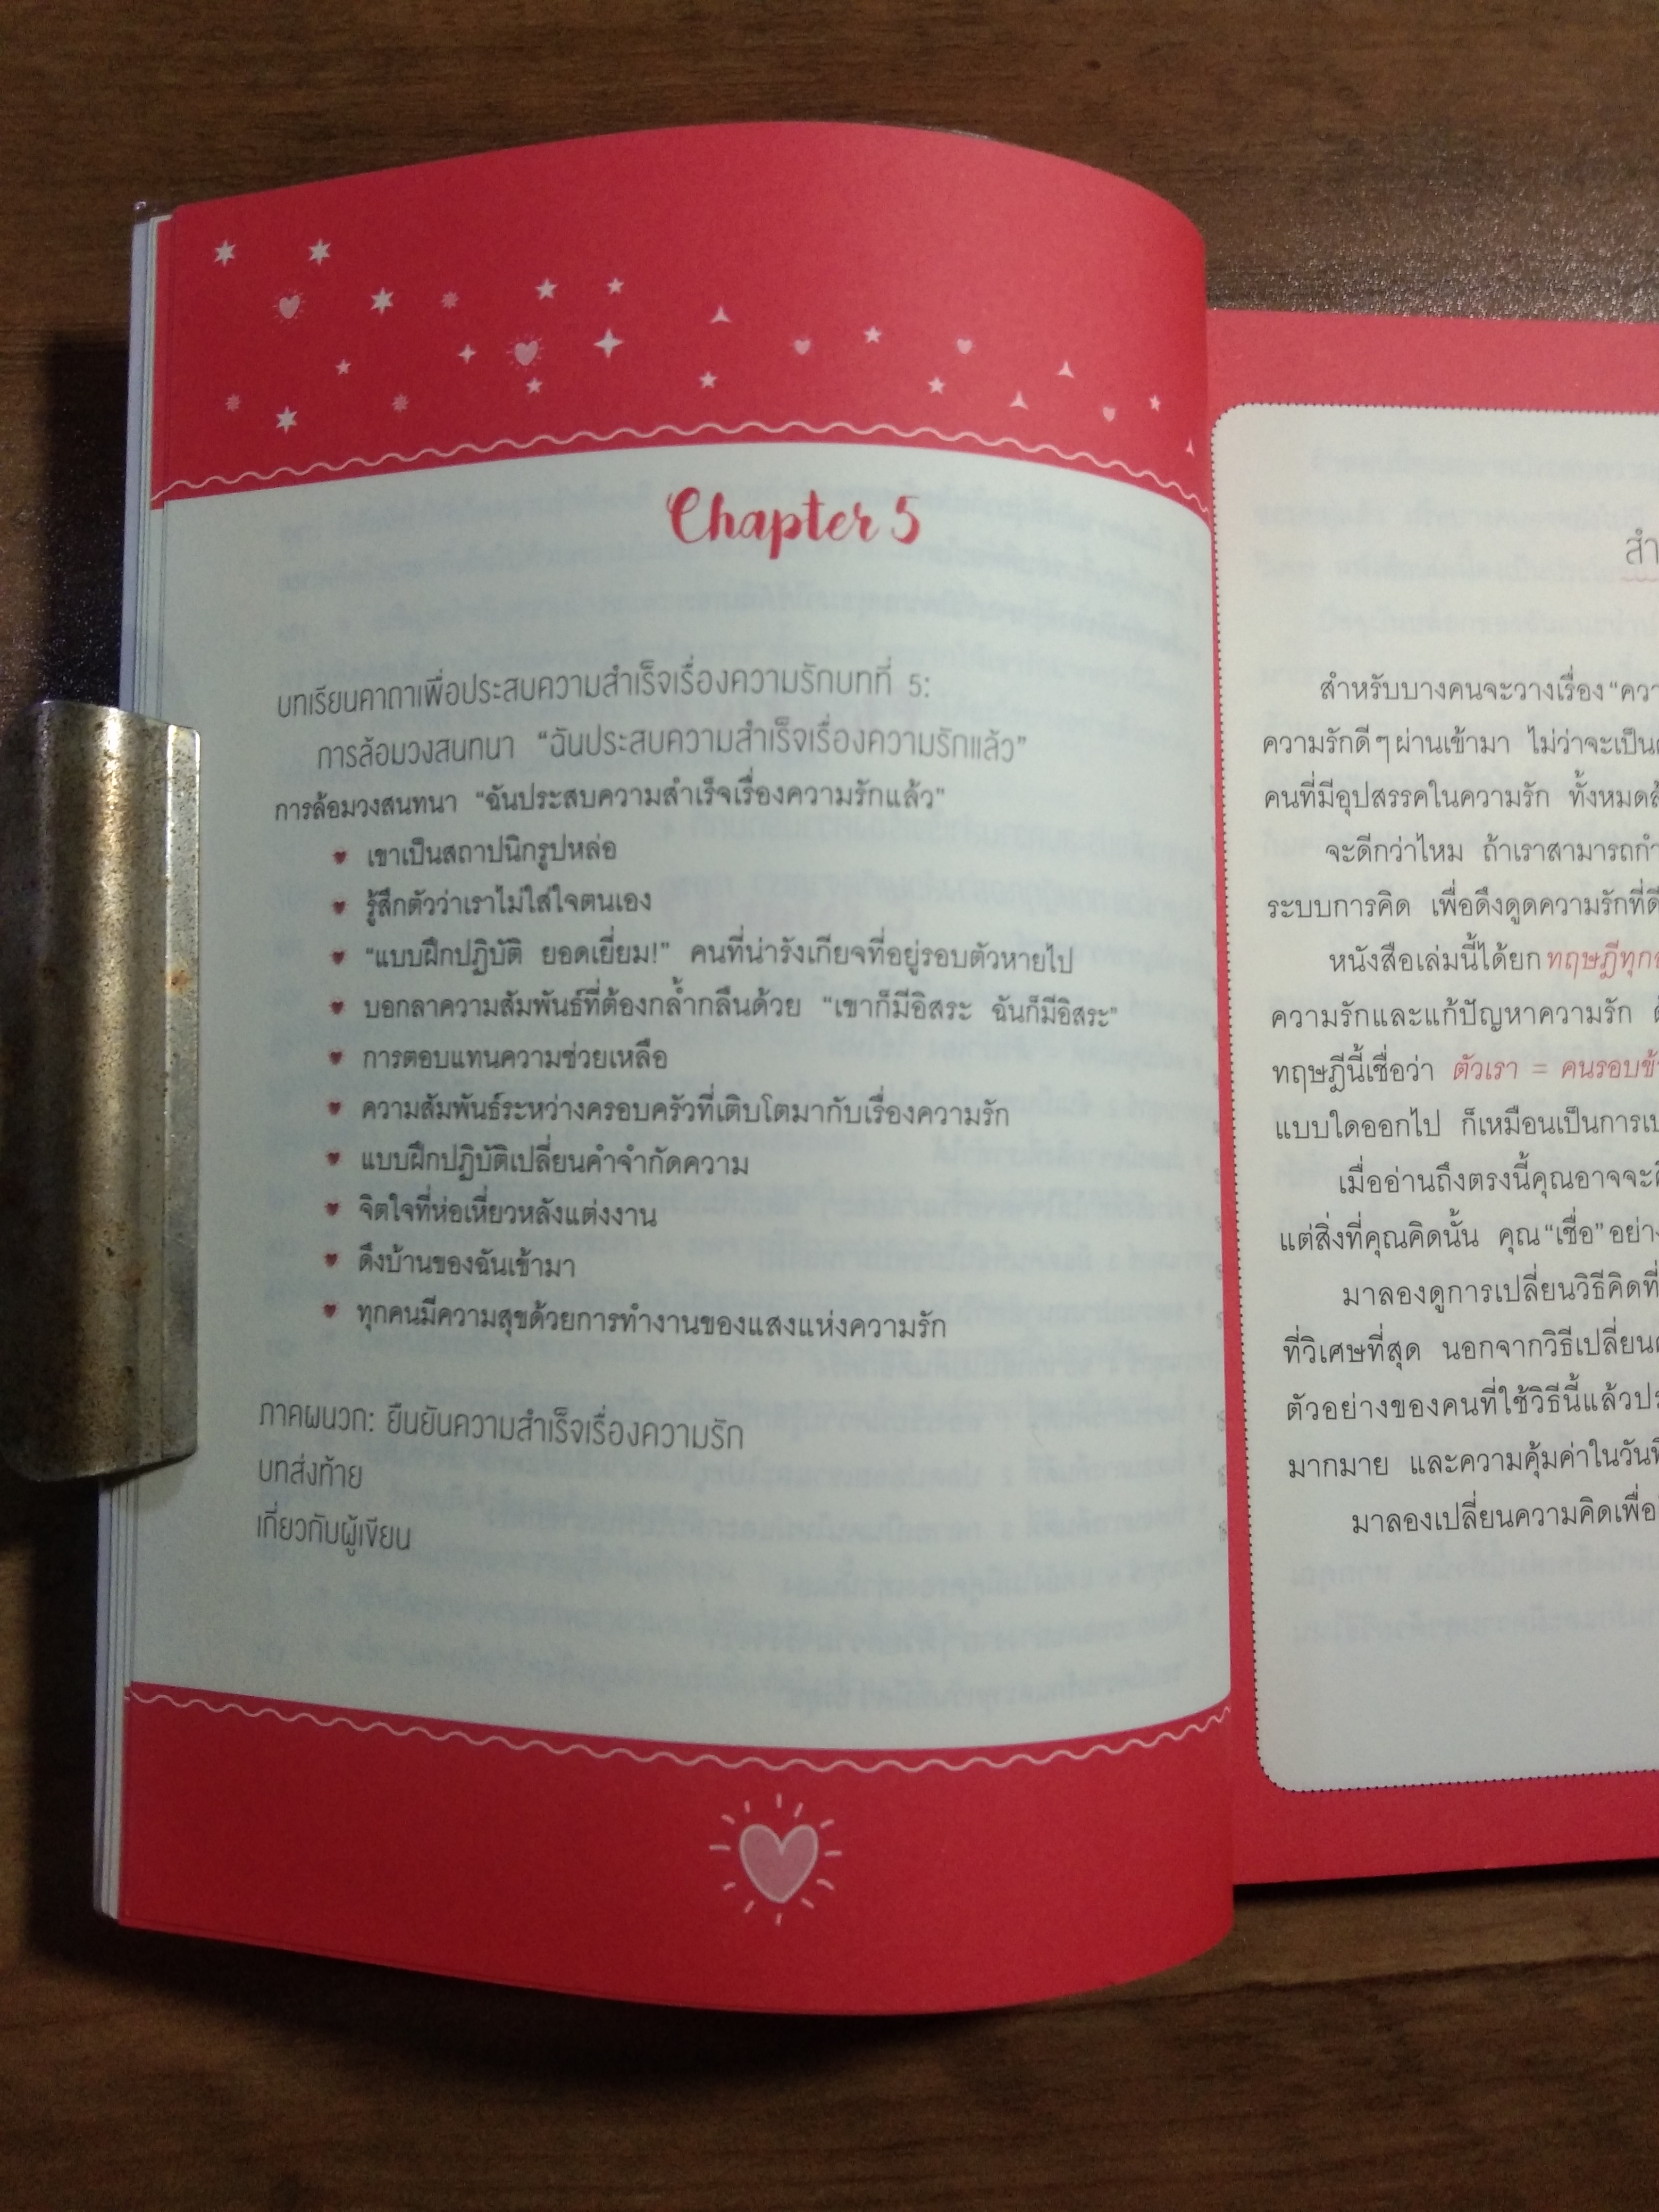 Chapter 5
บทเรียนคาถาเพื่อประสบความสำเร็จเรื่องความรักบทที่ 5:
การล้อมวงสนทนา “ฉันประสบความสำเร็จเรื่องความรักแล้ว”
การล้อมวงสนทนา “ฉันประสบความสำเร็จเรื่องความรักแล้ว”
เขาเป็นสถาปนิกรูปหล่อ
รู้สึกตัวว่าเราไม่ใส่ใจตนเอง
“แบบฝึกปฏิบัติ ยอดเยี่ยม!” คนที่น่ารังเกียจที่อยู่รอบตัวหายไป
บอกลาความสัมพันธ์ที่ต้องกล้ำกลืนด้วย “เขาก็มีอิสระ ฉันก็มีอิสระ”
การตอบแทนความช่วยเหลือ
ความสัมพันธ์ระหว่างครอบครัวที่เติบโตมากับเรื่องความรัก
แบบฝึกปฏิบัติเปลี่ยนคำจำกัดความ
จิตใจที่ห่อเหี่ยวหลังแต่งงาน
ดึงบ้านของฉันเข้ามา
ทุกคนมีความสุขด้วยการทำงานของแสงแห่งความรัก
ภาคผนวก: ยืนยันความสำเร็จเรื่องความรัก
บทส่งท้าย
เกี่ยวกับผู้เขียน
สำ
สำหรับบางคนจะวางเรื่อง “ควา
ความรักดีๆ ผ่านเข้ามา ไม่ว่าจะเป็น
คนที่มีอุปสรรคในความรัก ทั้งหมด
จะดีกว่าไหม ถ้าเราสามารถกำ
ระบบการคิด เพื่อดึงดูดความรักที่ดี
หนังสือเล่มนี้ได้ยก ทฤษฎีทุก
ความรักและแก้ปัญหาความรัก
ทฤษฎีนี้เชื่อว่า ตัวเรา = คนรอบข้
แบบใดออกไป ก็เหมือนเป็นการ
เมื่ออ่านถึงตรงนี้คุณอาจจะ
แต่สิ่งที่คุณคิดนั้น คุณ “เชื่อ” อย่าง
มาลองดูการเปลี่ยนวิธีคิดที่
ที่วิเศษที่สุด นอกจากวิธีเปลี่ยน
ตัวอย่างของคนที่ใช้วิธีนี้แล้วประ
มากมาย และความคุ้มค่าในวัน
มาลองเปลี่ยนความคิดเพื่อ